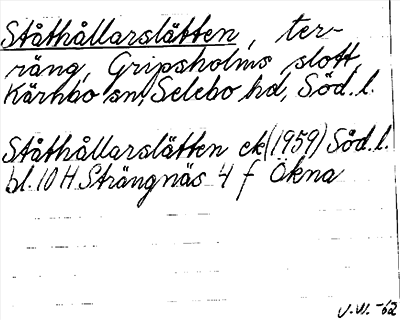 Ståthållarslätten, ter-
räng, Gripsholms slott,
Kärnbo sn, Selebo hd, Söd.l.
Ståthållarslätten ek (1959) Söd.l.
bl. 10 H Strängnäs 4 f Ökna
J.W. -62